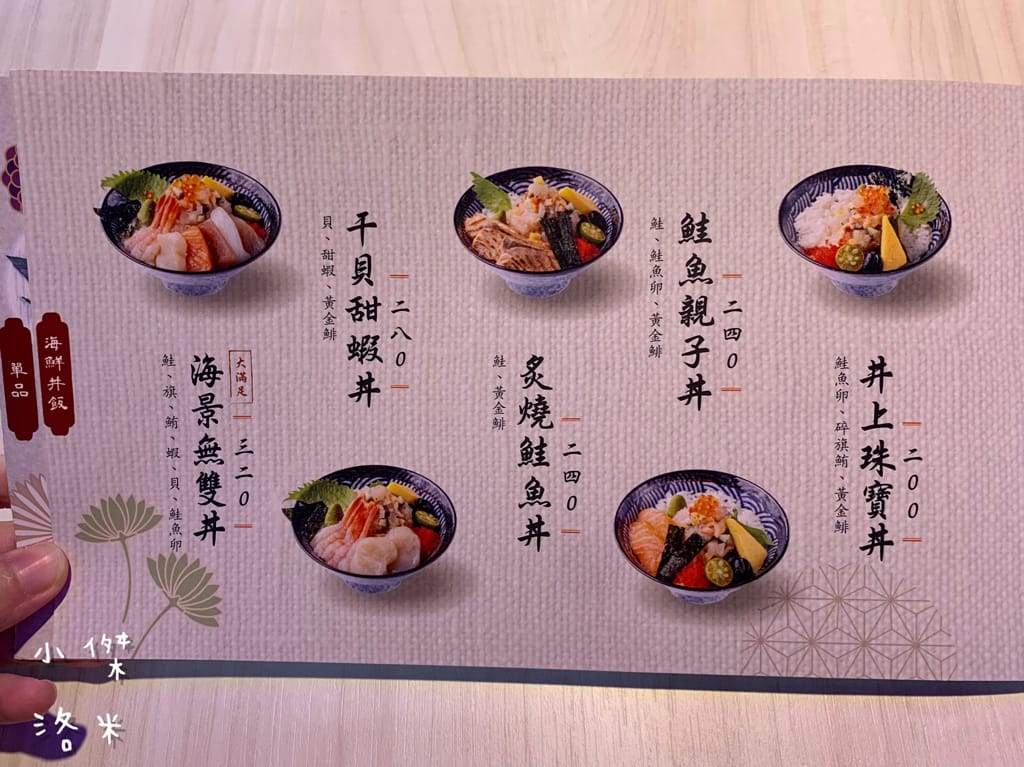 井上珠寶丼
二00
鮭魚卵、碎旗鮪、黃金鯡
鮭魚親子丼
二四0
鮭、鮭魚卵、黃金鯡
炙燒鮭魚丼
二四0
鮭、黃金鯡
干貝甜蝦丼
二八0
貝、甜蝦、黃金鯡
大滿足
海景無雙丼
三二0
鮭、旗、鮪、蝦、貝、鮭魚卵
海鮮丼飯
單品
小傑
洛米